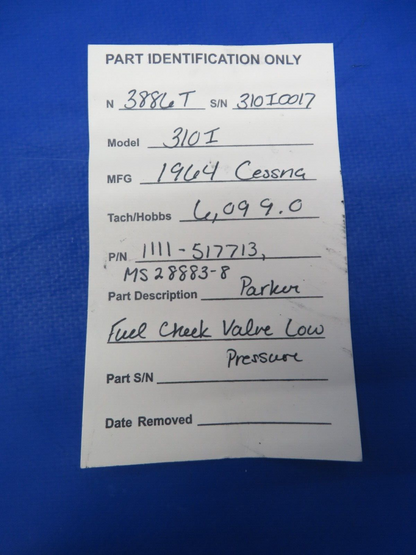 PART IDENTIFICATION ONLY
N 3886T S/N 310I0017
Model 310I
MFG 1964 Cessna
Tach/Hobbs 6,099.0
P/N 1111-517713,
MS28883-8
Part Description Parker
Fuel Check Valve Low
Pressure
Part S/N
Date Removed